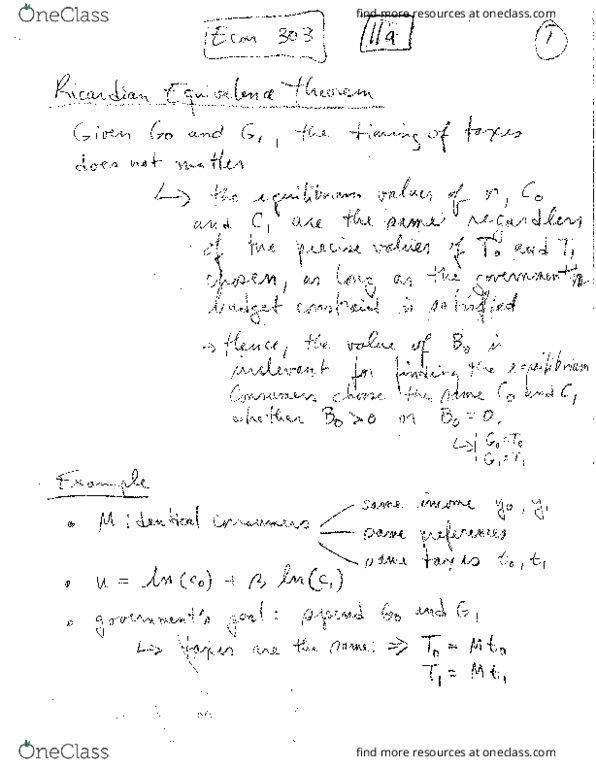 OneClass
find more resources at oneclass.com
Econ 303
11a
1
Ricardian Equivalence Theorem
Given G0 and G1, the timing of taxes
does not matter
↳ the equilibrium values of r, C0
and C1 are the same regardless
of the precise values of T0 and T1
chosen, as long as the government's
budget constraint is satisfied
→ Hence, the value of B0 is
irrelevant for finding the equilibrium
Consumers choose the same C0 and C1
whether B0 > 0 or B0 = 0.
↳ G0 = T0
G1 = T1
Example
• M identical consumers
same income y0, y1
same preferences
same taxes t0, t1
• u = ln(c0) + β ln(c1)
• government's goal: spend G0 and G1
↳ taxes are the same: ⇒ T0 = Mt0
T1 = Mt1
OneClass
find more resources at oneclass.com